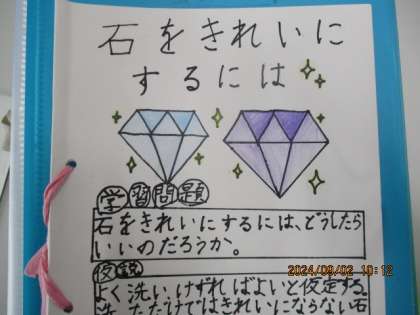 石をきれいに
するには
学習問題
石をきれいにするには、どうしたら
いいのだろうか。
仮説
よく洗い、けずればよいと仮定する。
洗っただけではきれいにならない石
2024/09/02 10:12